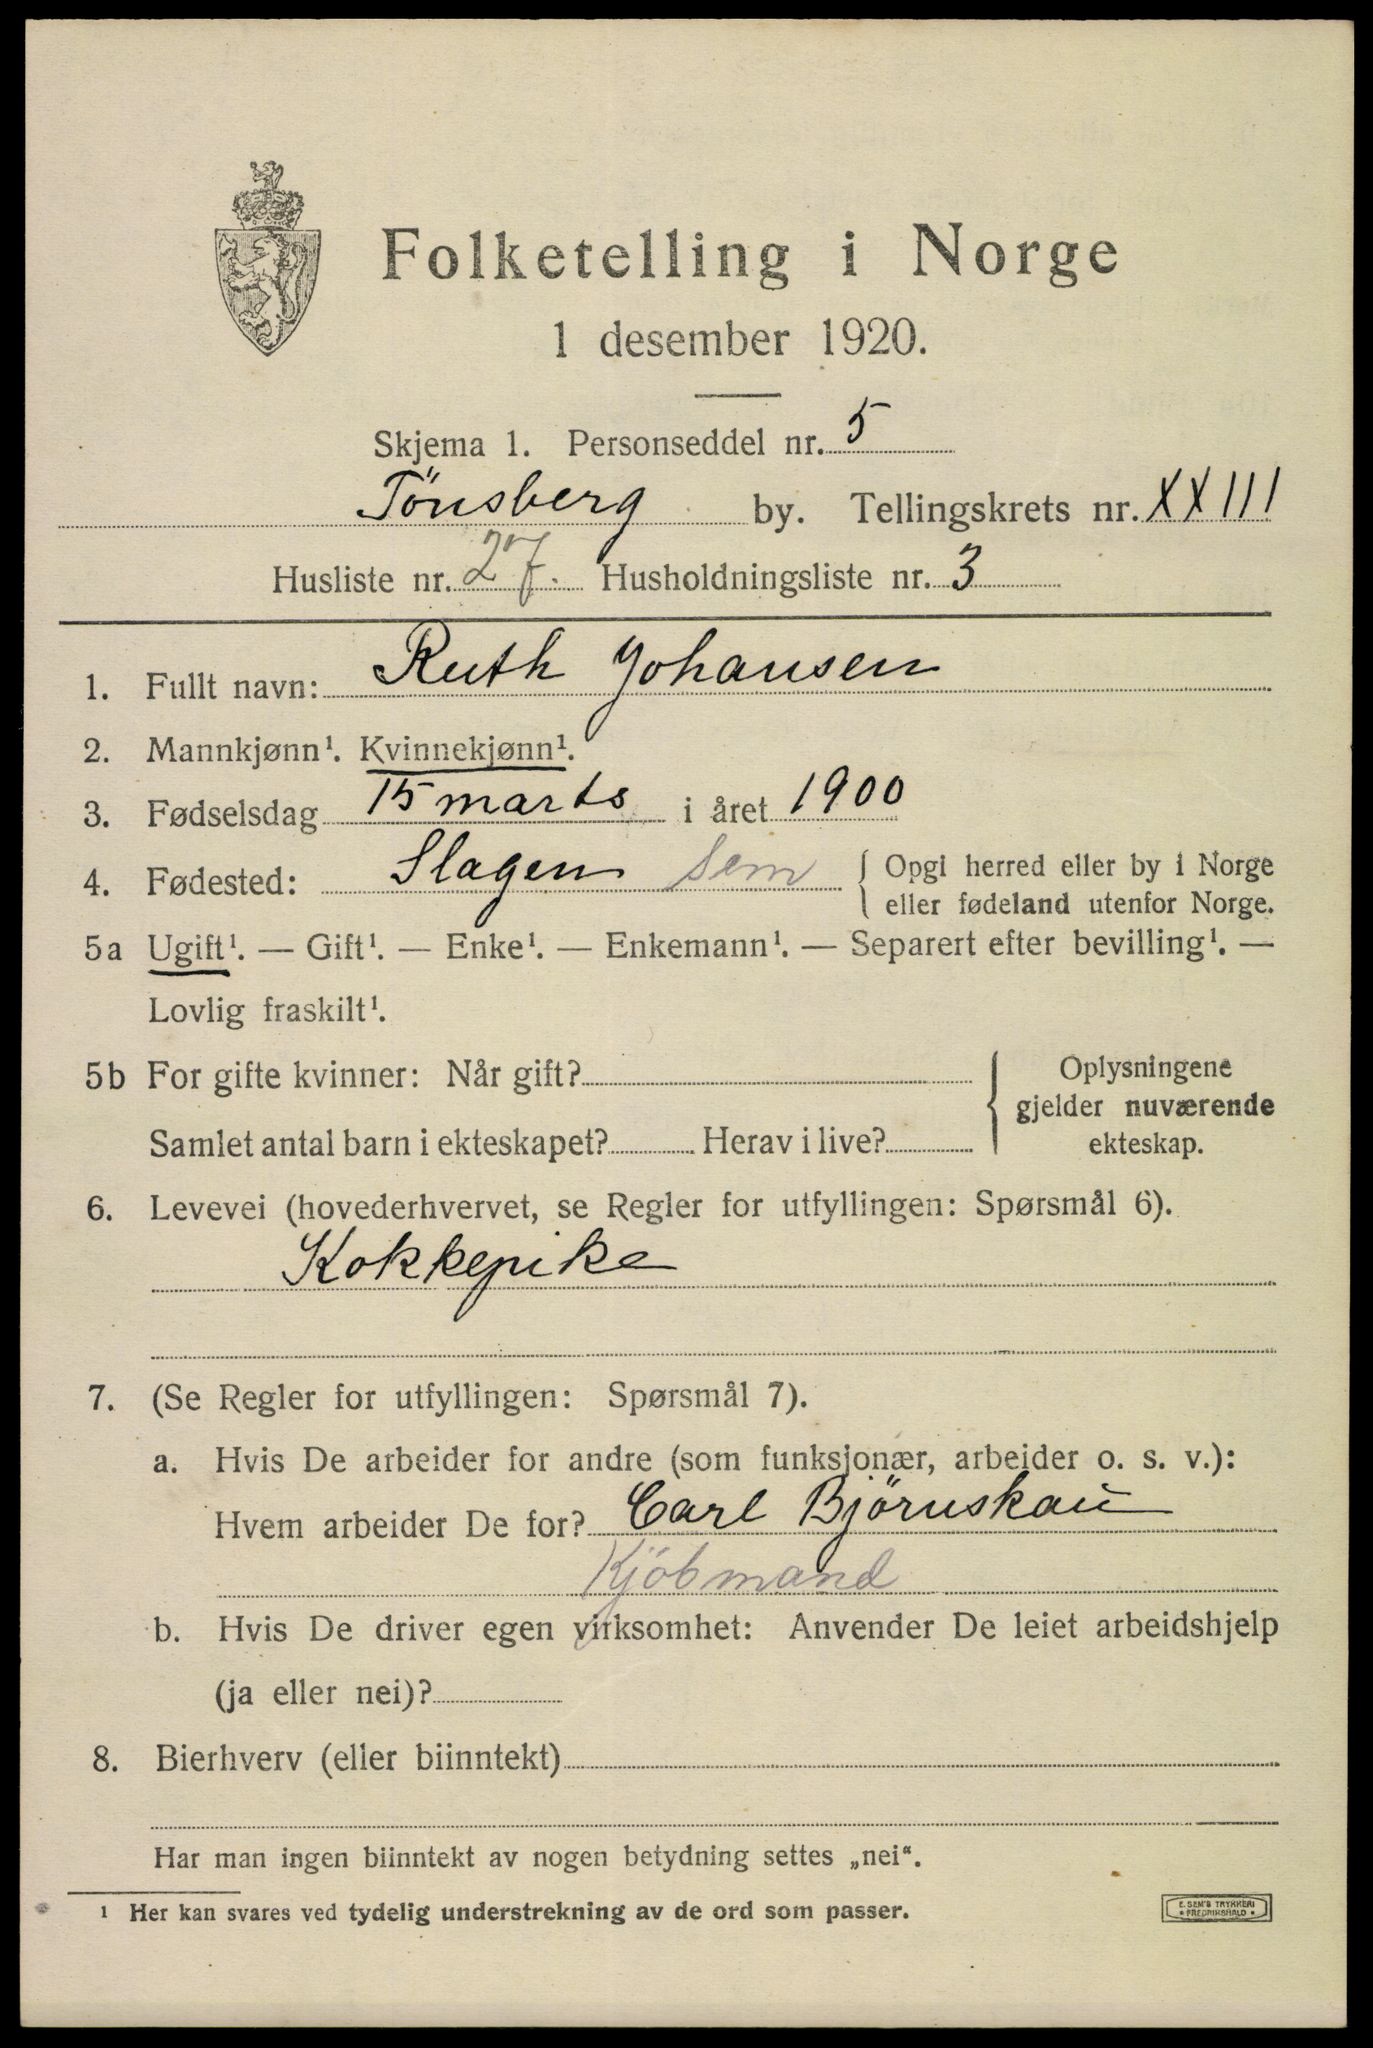 Folketelling i Norge
1 desember 1920.
Skjema 1. Personseddel nr. 5
Tönsberg by. Tellingskrets nr. XXIII
Husliste nr. 27. Husholdningsliste nr. 3
1. Fullt navn: Ruth Johansen
2. Mannkjønn¹. Kvinnekjønn¹.
3. Fødselsdag 15 marts i året 1900
4. Fødested: Slagen Sem { Opgi herred eller by i Norge
eller fødeland utenfor Norge.
5a Ugift¹. — Gift¹. — Enke¹. — Enkemann¹. — Separert efter bevilling¹. —
Lovlig fraskilt¹.
5b For gifte kvinner: Når gift? { Oplysningene
gjelder nuværende
Samlet antal barn i ekteskapet? Herav i live? ekteskap.
6. Levevei (hovederhvervet, se Regler for utfyllingen: Spørsmål 6).
Kokkepike
7. (Se Regler for utfyllingen: Spørsmål 7).
a. Hvis De arbeider for andre (som funksjonær, arbeider o. s. v.):
Hvem arbeider De for? Carl Björnskau
Kjöbmand
b. Hvis De driver egen virksomhet: Anvender De leiet arbeidshjelp
(ja eller nei)?
8. Bierhverv (eller biinntekt)
Har man ingen biinntekt av nogen betydning settes „nei".
¹ Her kan svares ved tydelig understrekning av de ord som passer.
E. SEM'S TRYKKERI
* FREDRIKSHALD *